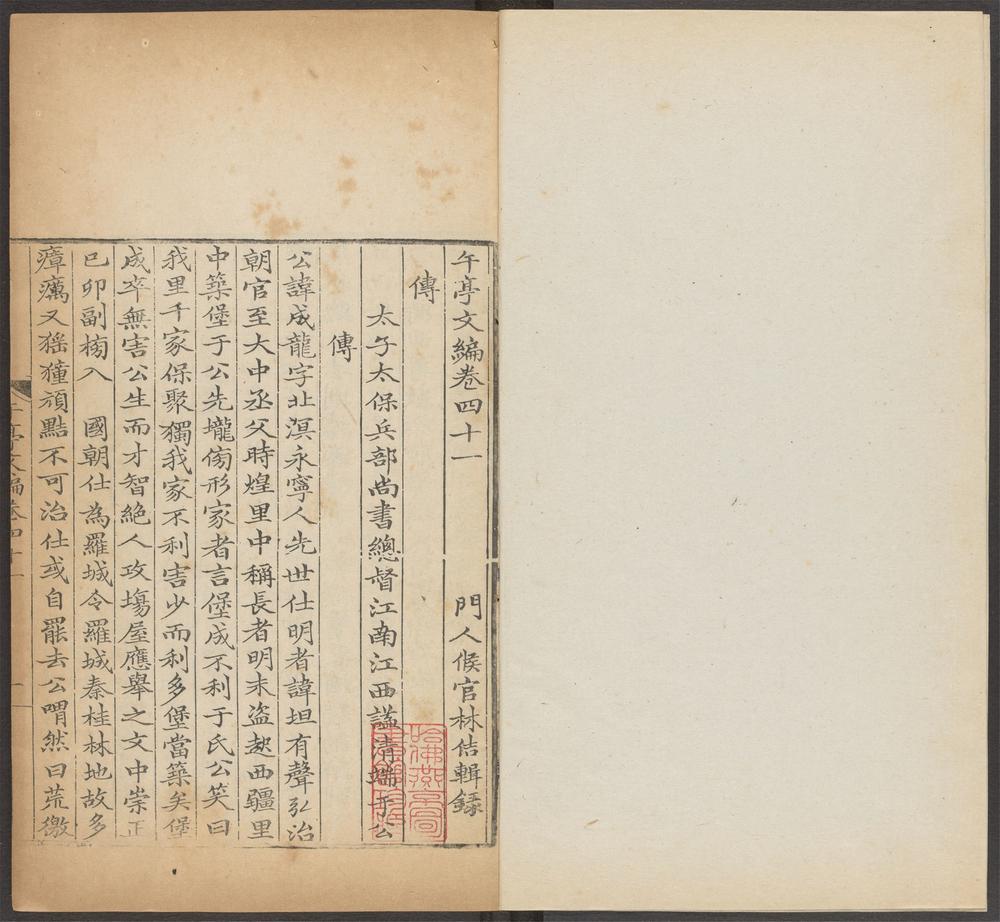 午亭文編卷四十一　　　門人候官林佶輯錄
傳
太子太保兵部尚書總督江南江西諡清端于公
傳
公諱成龍字北溟永寧人先世仕明者諱坦有聲弘治
朝官至大中丞父時煌里中稱長者明末盜起西疆里
中築堡于公先壠傍形家者言堡成不利于氏公笑曰
我里千家保聚獨我家不利害少而利多堡當築矣堡
成卒無害公生而才智絶人攻塲屋應舉之文中崇正
巳卯副榜入　國朝仕為羅城令羅城秦桂林地故多
瘴癘又猺獞頑點不可治仕或自罷去公喟然曰荒徼
午亭文編卷四十一　一
哈佛燕京